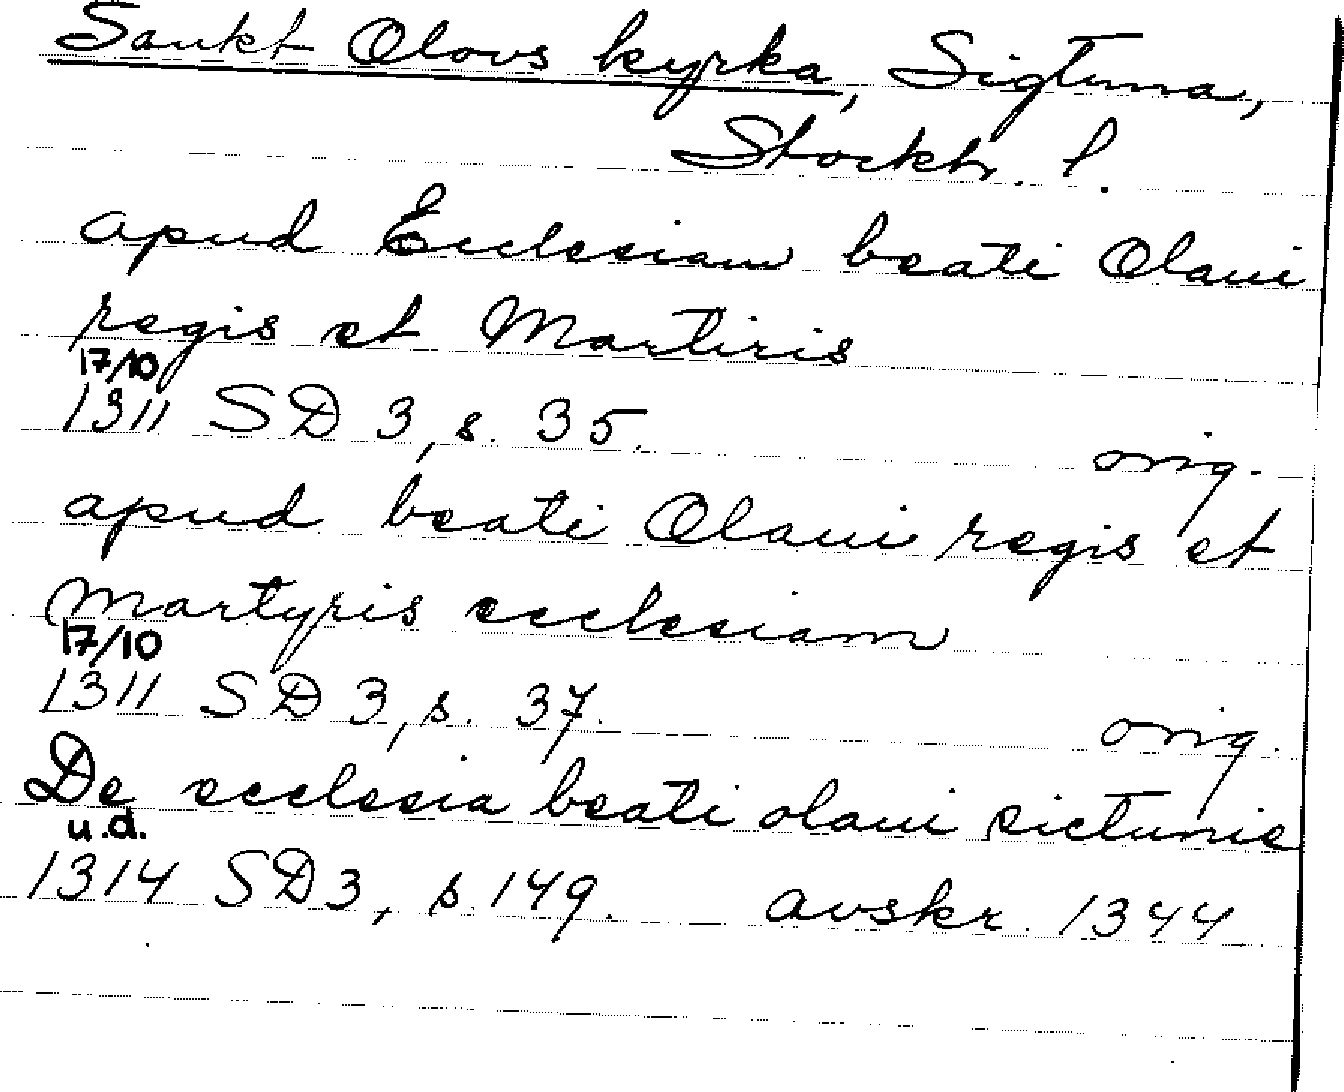 Sankt Olovs kyrka, Sigtuna,
Stockh. l.
apud Ecclesiam beati Olaui
regis et Martiris
17/10
1311 SD 3, s. 35. orig.
apud beati Olaui regis et
Martyris ecclesiam
17/10
1311 SD 3, s. 37. orig.
De ecclesia beati olaui sictunie
u.d.
1314 SD3, s. 149. avskr. 1344